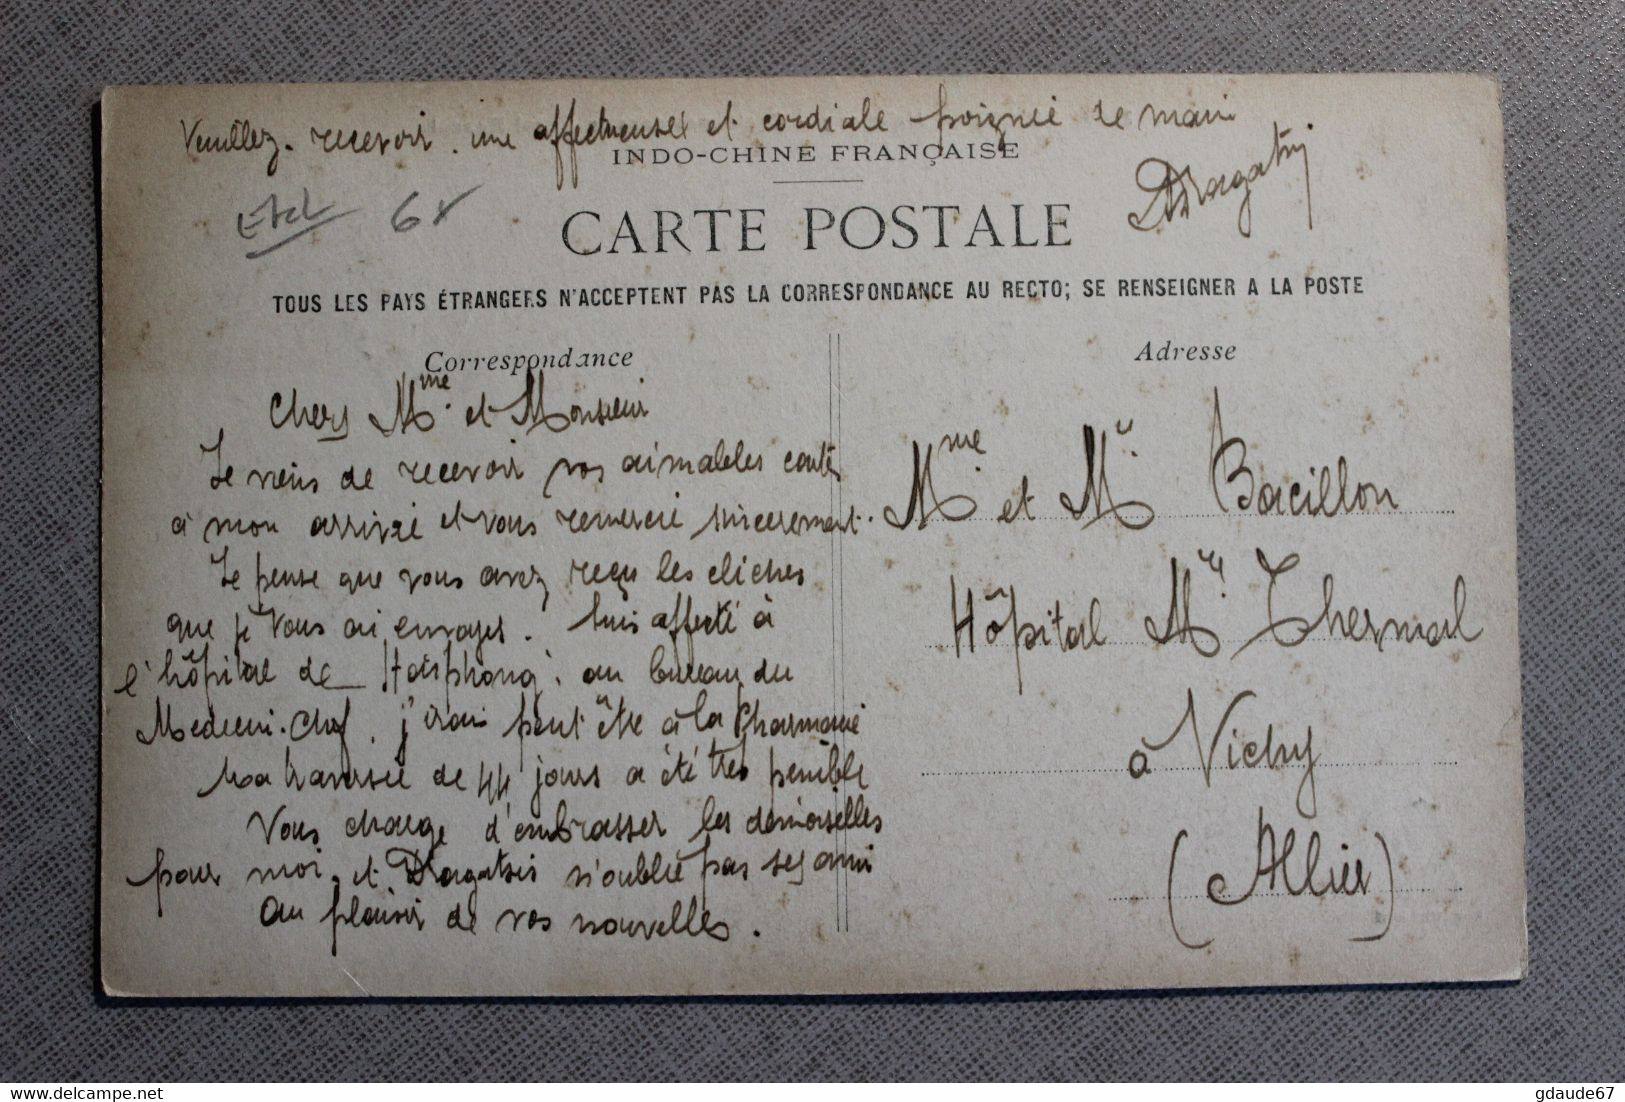 Veuillez. recevoir. une affectueuse et cordiale poignée de main
INDO-CHINE FRANÇAISE
Dragatsis
68
CARTE POSTALE
TOUS LES PAYS ÉTRANGERS N'ACCEPTENT PAS LA CORRESPONDANCE AU RECTO; SE RENSEIGNER A LA POSTE
Correspondance
Chers Mme. et Monsieur
Je viens de recevoir vos aimables cartes
à mon arrivée et vous remercie sincerement.
Je pense que vous avez reçu les cliches
que je vous ai envoyes. suis affecté à
l'hôpital de Haïphong; au bureau du
Medecin-Chef. j'irai peut être à la Pharmacie
La traversée de 44 jours a été très penible
Vous charge d'embrasser les demoiselles
pour moi. et Dragatsis n'oublie pas ses ami
au plaisir de vos nouvelles.
Adresse
Mme. et Mr. Bacillon
Hôpital Mre Thermal
à Vichy
(Allier)
delcampe.net
gdaude67